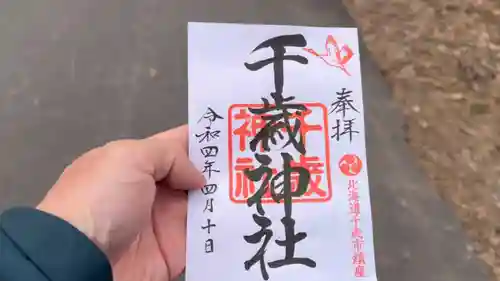 奉拝
北海道千歳市鎮座
千歳神社
千歳
神社
令和四年四月十日